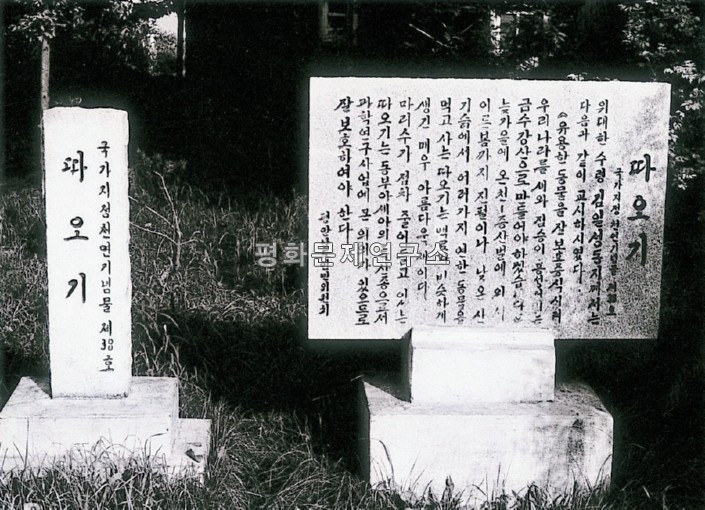 국가지정천연기념물 제38호
따오기
따오기
국가지정 천연기념물 제38호
위대한 수령 김일성동지께서는
다음과 같이 교시하시였다.
《유용한 동물을 잘 보호증식시켜
우리 나라를 새와 짐승이 흥성이는
금수강산으로 만들어야 하겠습니다
늦가을에 온천
이른봄까지 진펄이나 낮은 산
기슭에서 여러가지 연한 동물을
먹고 사는 따오기는 비슷하게
생긴 매우 아름다운 새이다
마리수가 점차 줄어들고 있는
따오기는 동부아세아의 특산종으로서
과학연구사업에 있으므로
잘 보호하여야 한다.
평화문제연구소